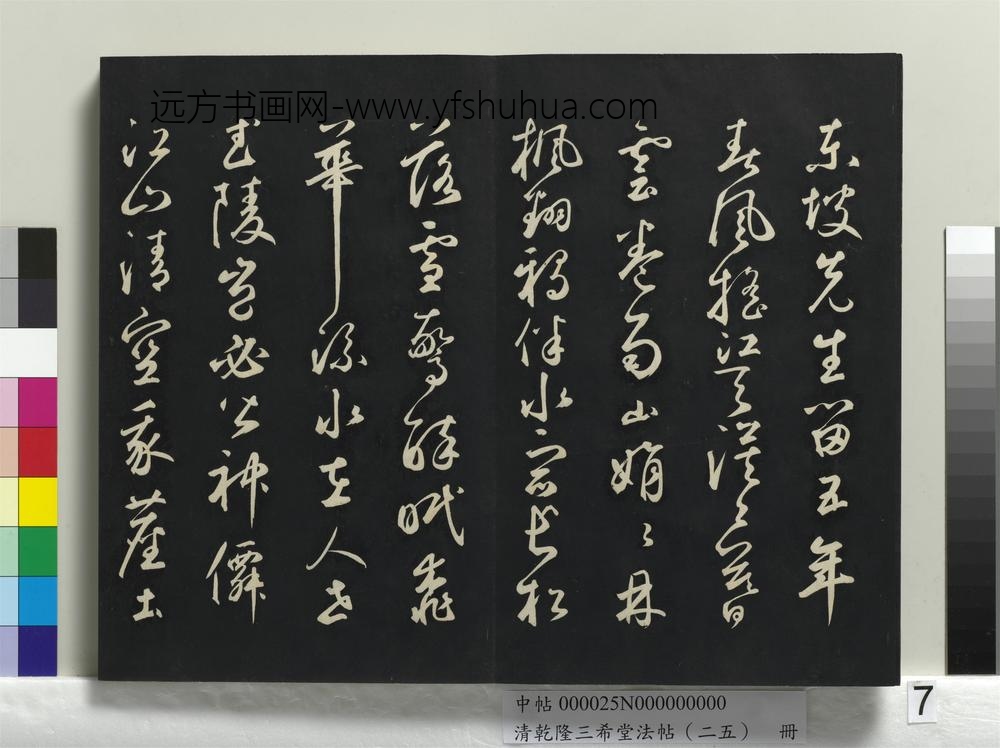 远方书画网-www.yfshuhua.com
東坡先生留五年
春風搖江天漠〻暮
雲卷雨山娟〻丹
楓翻鴉伴水宿長松
落雪驚醉眠桃
華流水在人世
武陵豈必皆神僊
江山清空我塵土
中帖 000025N000000000
清乾隆三希堂法帖（二五） 冊
7